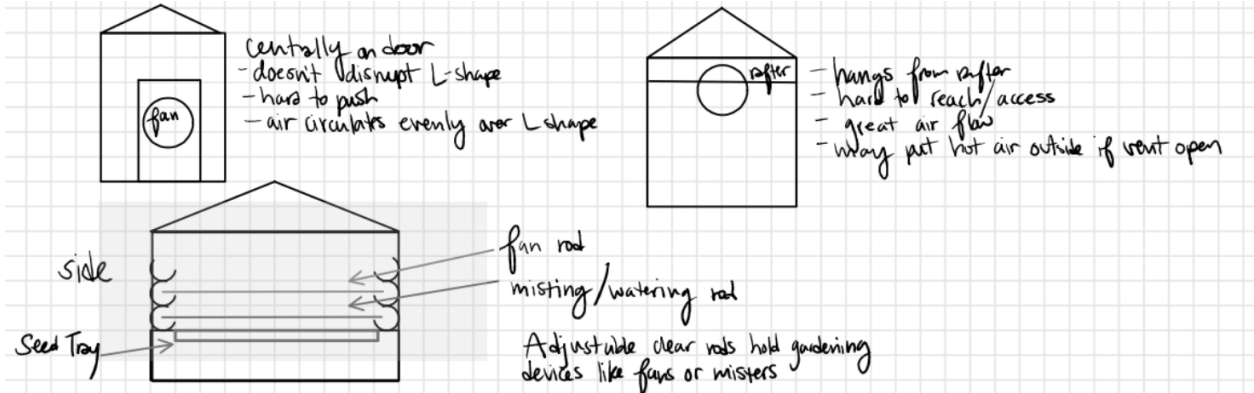 centrally on door
- doesn't disrupt L-shape
- hard to push
- air circulates evenly over L shape
fan
rafter
- hangs from rafter
- hard to reach/access
- great air flow
- may put hot air outside if vent open
side
fan rod
misting/watering rod
Seed Tray
Adjustable clear rods hold gardening
devices like fans or misters